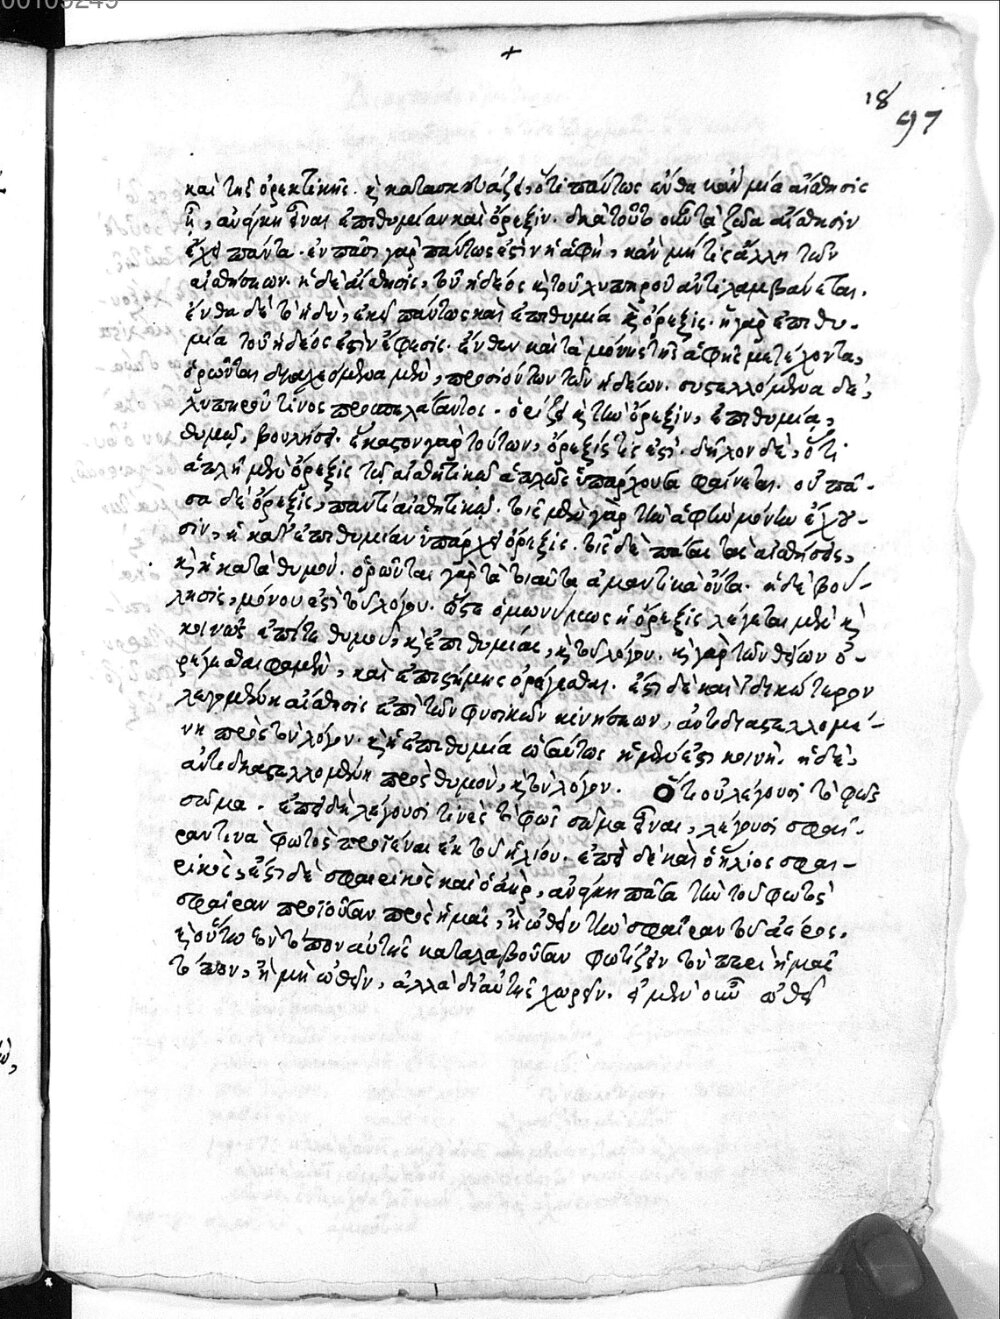 00109249
+
18
97
καὶ τῆς ὀρεκτικῆς. κ κατασκευάζει, ὅτι πάντως ἔνθα κἂν μία αἴσθησις
ᾖ, ἀνάγκη εἶναι ἐπιθυμίαν καὶ ὄρεξιν. διὰ τοῦτο οὖν τὰ ζῶα αἴσθησιν
ἔχει πάντα. ἐν πᾶσι γὰρ πάντως ἐστὶν ἡ ἁφή, κἂν μή τις ἄλλη τῶν
αἰσθήσεων. ἡ δὲ αἴσθησις, τοῦ ἡδέος κ τοῦ λυπηροῦ ἀντιλαμβάνεται.
ἔνθα δὲ τὸ ἡδὺ, ἐκεῖ πάντως καὶ ἐπιθυμία κ ὄρεξις. ἡ γὰρ ἐπιθυ-
μία τοῦ ἡδέος ἐστὶν ἔφεσις. ἔνθεν καὶ τὰ μόνης τῆς ἁφῆς μετέχοντα,
ὁρῶνται διαχεόμενα μὲν, προσιόντων τῶν ἡδέων. συστελλόμενα δὲ,
λυπηροῦ τινος προσπελάσαντος. ὁρίζει κ τὴν ὄρεξιν, ἐπιθυμία,
θυμῷ, βουλήσει. ἕκαστον γὰρ τούτων, ὄρεξίς τις ἐστί. δῆλον δὲ, ὅτι
ἁπλῆ μὲν ὄρεξις τῷ αἰσθητικῷ ἁπλῶς ὑπάρχουσα φαίνεται. οὐ πᾶ-
σα δὲ ὄρεξις, παντὶ αἰσθητικῷ. τοῖς μὲν γὰρ τὴν ἁφὴν μόνην ἔχου-
σιν, ἡ κατ' ἐπιθυμίαν ὑπάρχει ὄρεξις. τοῖς δὲ πάσας τὰς αἰσθήσεις,
κ ἡ κατὰ θυμόν. ὁρῶνται γὰρ τὰ τοιαῦτα ἀμυντικὰ ὄντα. ἡ δὲ βού-
λησις, μόνου ἐστὶ τοῦ λόγου. ὥστε ὁμωνύμως ἡ ὄρεξις λέγεται μὲν κ
κοινῶς ἐπί τε θυμοῦ, κ ἐπιθυμίας, κ τοῦ λόγου. κ γὰρ τῶν θείων ὀ-
ρέγεσθαι φαμὲν, καὶ ἐπιστήμης ὀρέγεσθαι. ἔστι δὲ καὶ ἰδικώτερον
λεγομένη αἴσθησις ἐπὶ τῶν φυσικῶν κινήσεων, ἀντιδιαστελλομέ-
νη πρὸς τὸν λόγον. κ ἡ ἐπιθυμία ὡσαύτως ἡ μὲν ἐστι κοινὴ. ἡ δὲ,
ἀντιδιαστελλομένη πρὸς θυμὸν, κ τὸν λόγον. Ὅτι οὐ λέγουσι τὸ φῶς
σῶμα. ἐπειδὴ λέγουσί τινες τὸ φῶς σῶμα εἶναι, λέγουσι σφαῖ-
ραν τινα φωτὸς προϊέναι ἐκ τοῦ ἡλίου. ἐπεὶ δὲ καὶ ὁ ἥλιος σφαι-
ρικὸς, ἔστι δὲ σφαιρικὸς καὶ ὁ ἀὴρ, ἀνάγκη πᾶσα τὴν τοῦ φωτὸς
σφαῖραν προϊοῦσαν πρὸς ἡμᾶς, ἢ ὠθεῖν τὴν σφαῖραν τοῦ ἀέρος.
κ οὕτω τὸν τόπον αὐτῆς καταλαβοῦσαν φωτίζειν τὸν περὶ ἡμᾶς
τόπον, ἢ μὴ ὠθεῖν, ἀλλὰ δι' αὐτῆς χωρεῖν. εἰ μὲν οὖν ὠθεῖ